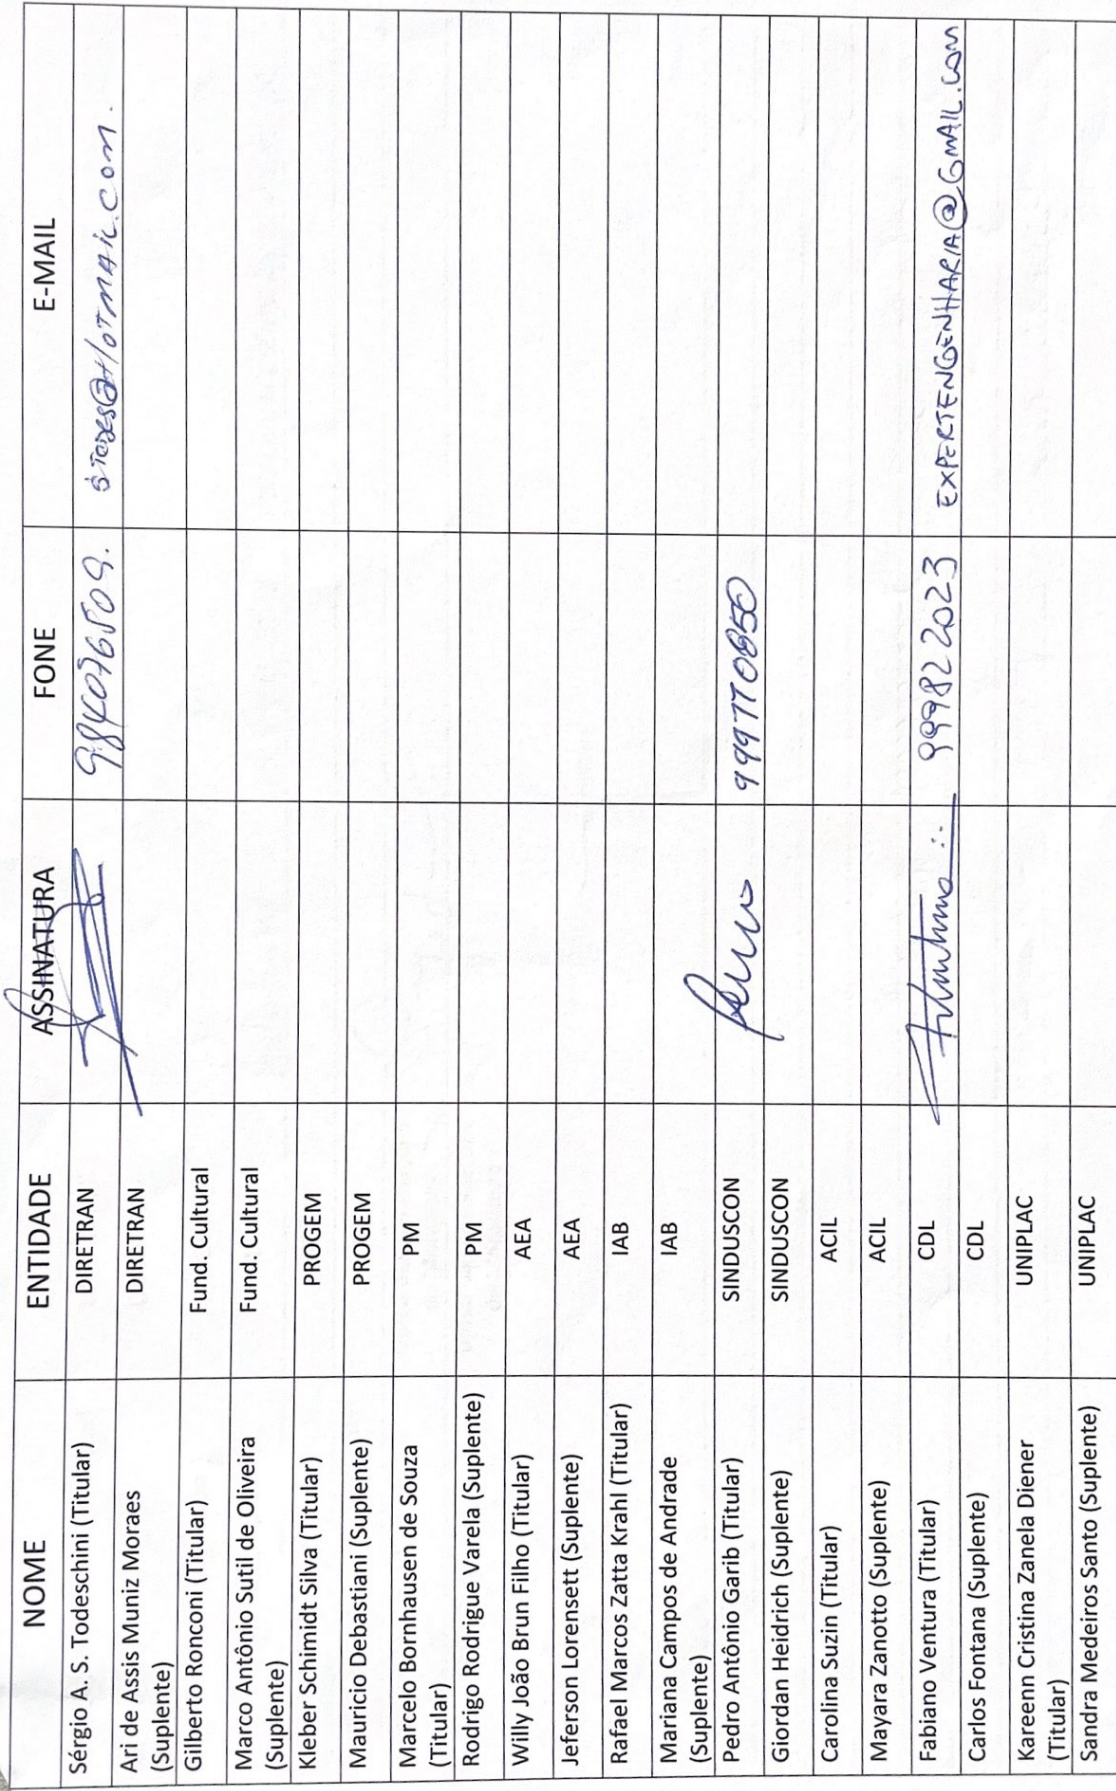 NOME ENTIDADE ASSINATURA FONE E-MAIL
Sérgio A. S. Todeschini (Titular) DIRETRAN 984076509.
Ari de Assis Muniz Moraes
(Suplente) DIRETRAN
Gilberto Ronconi (Titular) Fund. Cultural
Marco Antônio Sutil de Oliveira
(Suplente) Fund. Cultural
Kleber Schimidt Silva (Titular) PROGEM
Mauricio Debastiani (Suplente) PROGEM
Marcelo Bornhausen de Souza
(Titular) PM
Rodrigo Rodrigue Varela (Suplente) PM
Willy João Brun Filho (Titular) AEA
Jeferson Lorensett (Suplente) AEA
Rafael Marcos Zatta Krahl (Titular) IAB
Mariana Campos de Andrade
(Suplente) IAB
Pedro Antônio Garib (Titular) SINDUSCON
Giordan Heidrich (Suplente) SINDUSCON
Carolina Suzin (Titular) ACIL
Mayara Zanotto (Suplente) ACIL
Fabiano Ventura (Titular) CDL 99982 2023 EXPERTENGENHARIA@GMAIL.COM
Carlos Fontana (Suplente) CDL
Kareenn Cristina Zanela Diener
(Titular) UNIPLAC
Sandra Medeiros Santo (Suplente) UNIPLAC